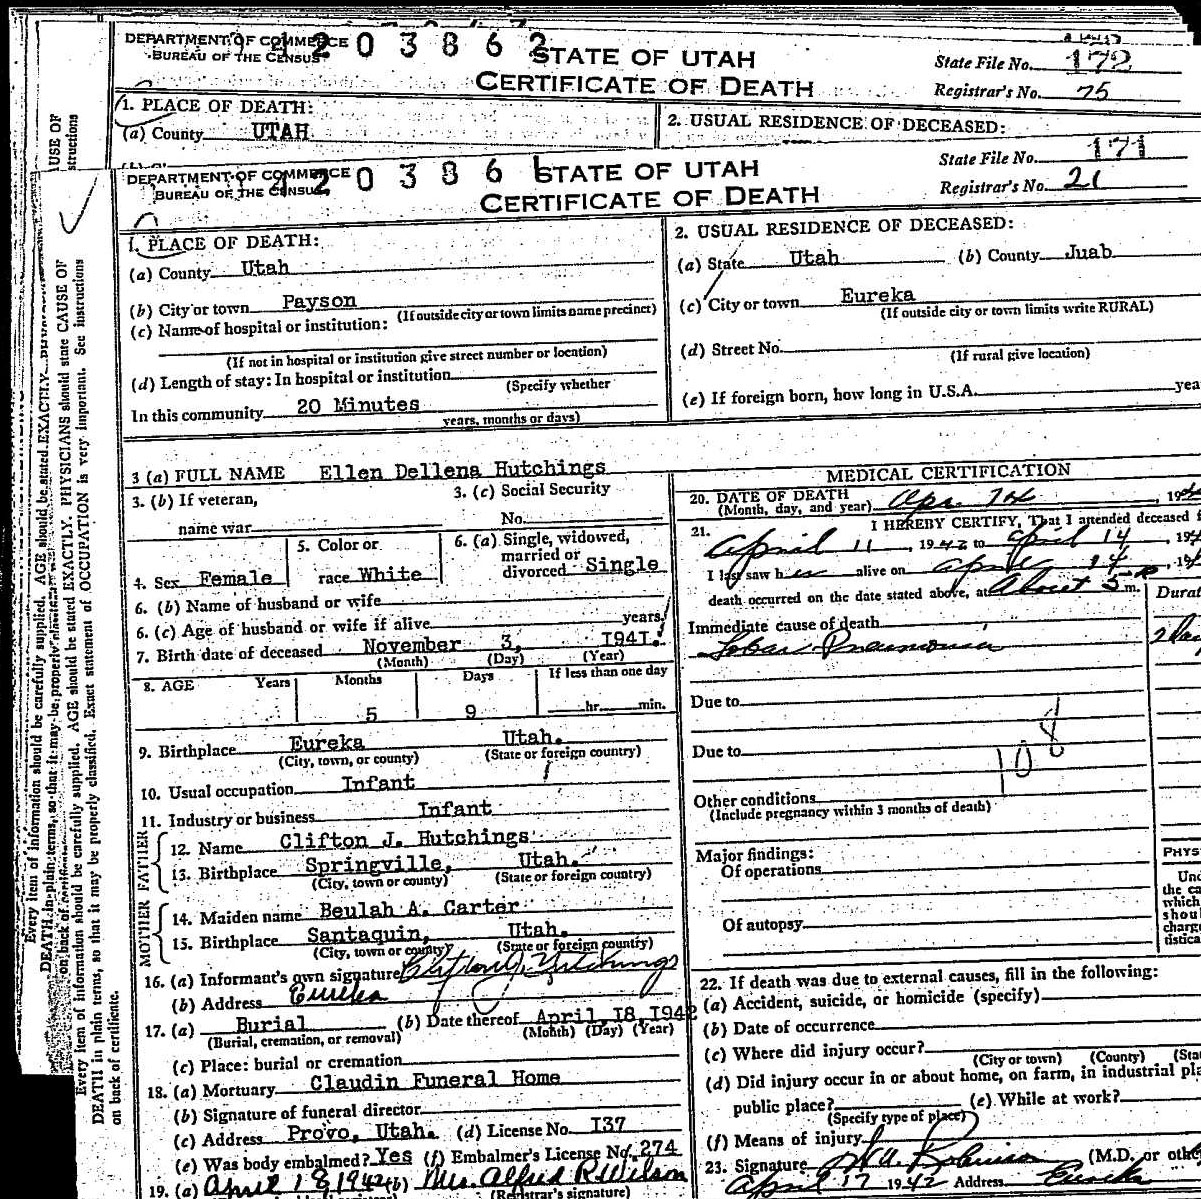 DEPARTMENT OF COMMERCE
BUREAU OF THE CENSUS
4203862
STATE OF UTAH
CERTIFICATE OF DEATH
State File No. 172
Registrar's No. 75
1. PLACE OF DEATH:
(a) County UTAH
2. USUAL RESIDENCE OF DECEASED:
DEPARTMENT OF COMMERCE
BUREAU OF THE CENSUS
420386
STATE OF UTAH
CERTIFICATE OF DEATH
State File No. 171
Registrar's No. 21
1. PLACE OF DEATH:
(a) County Utah
(b) City or town Payson
(If outside city or town limits name precinct)
(c) Name of hospital or institution:
(If not in hospital or institution give street number or location)
(d) Length of stay: In hospital or institution
(Specify whether
In this community 20 Minutes
years, months or days)
2. USUAL RESIDENCE OF DECEASED:
(a) State Utah (b) County Juab
(c) City or town Eureka
(If outside city or town limits write RURAL)
(d) Street No.
(If rural give location)
(e) If foreign born, how long in U.S.A. yea
3 (a) FULL NAME Ellen Dellena Hutchings
3. (b) If veteran,
name war
3. (c) Social Security
No.
4. Sex Female
5. Color or
race White
6. (a) Single, widowed,
married or
divorced Single
6. (b) Name of husband or wife
6. (c) Age of husband or wife if alive years
7. Birth date of deceased November 3, I94I.
(Month) (Day) (Year)
8. AGE Years Months Days If less than one day
5 9 hr. min.
9. Birthplace Eureka Utah.
(City, town, or county) (State or foreign country)
10. Usual occupation Infant
11. Industry or business Infant
FATHER
12. Name Clifton J. Hutchings
13. Birthplace Springville, Utah.
(City, town or county) (State or foreign country)
MOTHER
14. Maiden name Beulah A. Carter
15. Birthplace Santaquin, Utah.
(City, town or county) (State or foreign country)
16. (a) Informant's own signature
(b) Address Eureka
17. (a) Burial (b) Date thereof April I8 I942
(Burial, cremation, or removal) (Month) (Day) (Year)
(c) Place: burial or cremation
18. (a) Mortuary Claudin Funeral Home
(b) Signature of funeral director
(c) Address Provo, Utah. (d) License No. I37
(e) Was body embalmed? Yes (f) Embalmer's License No. 274
19. (a) April 18, 1942 (b) Mrs. Alfred R. Wilson
(Registrar's signature)
MEDICAL CERTIFICATION
20. DATE OF DEATH
(Month, day, and year) Apr. 14, 194
21. I HEREBY CERTIFY, That I attended deceased f
April 11, 1942 to April 14, 194
I last saw her alive on April 14, 194
death occurred on the date stated above, at About 5 P m.
Durat
Immediate cause of death
Lobar Pneumonia 2 Day
Due to
Due to
108
Other conditions
(Include pregnancy within 3 months of death)
Major findings:
Of operations
Of autopsy
PHYS
Und
the ca
which
shou
charg
tistica
22. If death was due to external causes, fill in the following:
(a) Accident, suicide, or homicide (specify)
(b) Date of occurrence
(c) Where did injury occur?
(City or town) (County) (Sta
(d) Did injury occur in or about home, on farm, in industrial pla
public place? (e) While at work?
(Specify type of place)
(f) Means of injury
23. Signature (M.D. or othe
April 17 1942 Address Eureka
USE OF
structions
Every item of information should be carefully supplied. AGE should be stated EXACTLY. PHYSICIANS should state CAUSE OF
DEATH in plain terms, so that it may be properly classified. Exact statement of OCCUPATION is very important. See instructions
on back of certificate.
Every item of information should be carefully supplied. AGE should be stated EXACTLY.
DEATH in plain terms, so that it may be properly